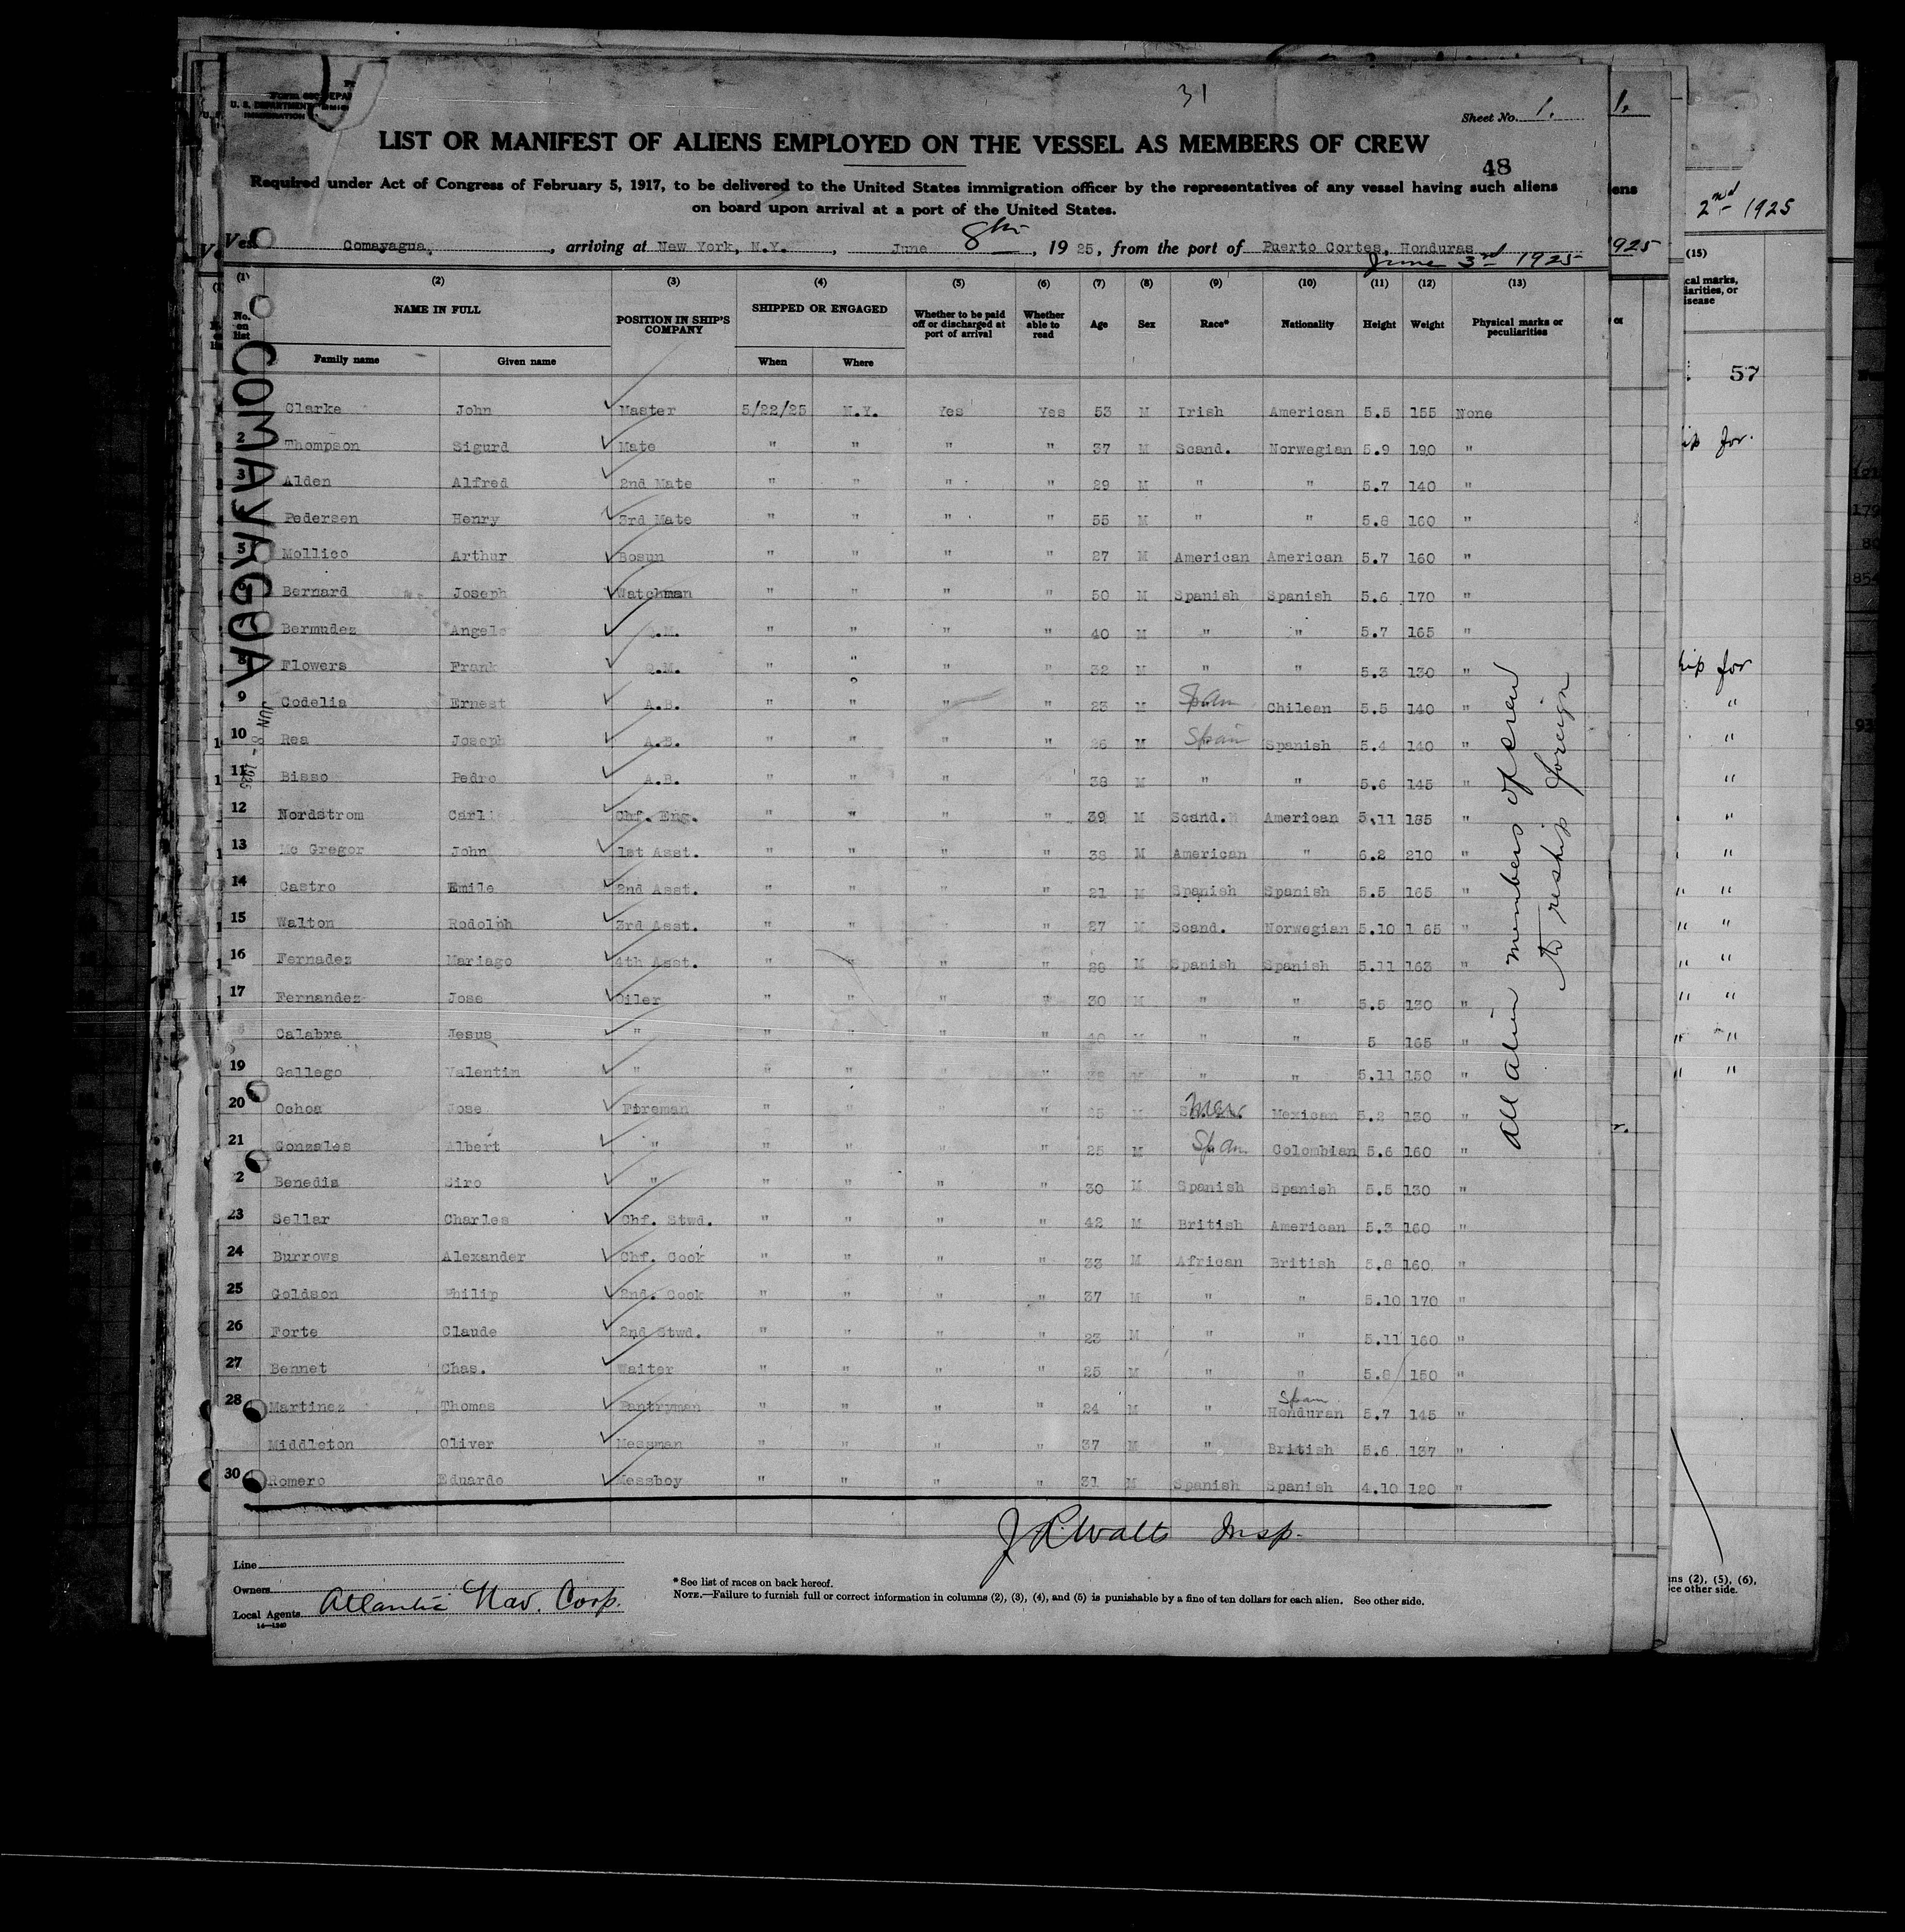 31
Sheet No. 1.
LIST OR MANIFEST OF ALIENS EMPLOYED ON THE VESSEL AS MEMBERS OF CREW
48
Required under Act of Congress of February 5, 1917, to be delivered to the United States immigration officer by the representatives of any vessel having such aliens
on board upon arrival at a port of the United States.
Ves Comayagua, arriving at New York, N.Y., June 8th, 1925, from the port of Puerto Cortes, Honduras
June 3rd 1925
(1) (2) (3) (4) (5) (6) (7) (8) (9) (10) (11) (12) (13)
No. on list NAME IN FULL POSITION IN SHIP'S COMPANY SHIPPED OR ENGAGED Whether to be paid off or discharged at port of arrival Whether able to read Age Sex Race* Nationality Height Weight Physical marks or peculiarities
Family name Given name When Where
COMAYAGUA
JUN 8 - 1925
Clarke John Master 5/22/25 N.Y. Yes Yes 53 M Irish American 5.5 155 None
2 Thompson Sigurd Mate " " " " 37 M Scand. Norwegian 5.9 190 "
3 Alden Alfred 2nd Mate " " " " 29 M " " 5.7 140 "
Pedersen Henry 3rd Mate " " " " 55 M " " 5.8 160 "
5 Mollico Arthur Bosun " " " " 27 M American American 5.7 160 "
6 Bernard Joseph Watchman " " " " 50 M Spanish Spanish 5.6 170 "
7 Bermudez Angelo Q.M. " " " " 40 M " " 5.7 165 "
8 Flowers Frank Q.M. " " " " 32 M " " 5.3 130 "
9 Codelia Ernest A.B. " " " " 23 M Span Chilean 5.5 140 "
10 Rea Joseph A.B. " " " " 26 M Span Spanish 5.4 140 "
11 Bisso Pedro A.B. " " " 38 M " " 5.6 145 "
12 Nordstrom Carl Chf. Eng. " " " " 39 M Scand. American 5.11 185 "
13 Mc Gregor John 1st Asst. " " " " 38 M American " 6.2 210 "
14 Castro Emile 2nd Asst. " " " " 21 M Spanish Spanish 5.5 165 "
15 Walton Rodolph 3rd Asst. " " " " 27 M Scand. Norwegian 5.10 165 "
16 Fernadez Mariago 4th Asst. " " " " 28 M Spanish Spanish 5.11 163 "
17 Fernandez Jose Oiler " " " " 30 M " " 5.5 130 "
Calabra Jesus " " " " " 40 M " " 5 165 "
19 Gallego Valentin " " " " " 38 M " " 5.11 150 "
20 Ochoa Jose Fireman " " " " 25 M Mex. Mexican 5.2 130 "
21 Gonzales Albert " " " " " 25 M Span. Colombian 5.6 160 "
2 Benedis Siro " " " " " 30 M Spanish Spanish 5.5 130 "
23 Sellar Charles Chf. Stwd. " " " " 42 M British American 5.3 160 "
24 Burrows Alexander Chf. Cook " " " " 33 M African British 5.8 160 "
25 Goldson Philip 2nd. Cook " " " " 37 M " " 5.10 170 "
26 Forte Claude 2nd Stwd. " " " " 23 M " " 5.11 160 "
27 Bennet Chas. Waiter " " " " 25 M " " 5.8 150 "
28 Martinez Thomas Pantryman " " " " 24 M " Span Honduran 5.7 145 "
Middleton Oliver Messman " " " " 37 M " British 5.6 137 "
30 Romero Eduardo Messboy " " " " 31 M Spanish Spanish 4.10 120 "
All alien members of crew
to reship foreign
J R Walts Insp.
Line
Owners
Local Agents Atlantic Nav. Corp.
*See list of races on back hereof.
NOTE.—Failure to furnish full or correct information in columns (2), (3), (4), and (5) is punishable by a fine of ten dollars for each alien. See other side.
1.
ens
925
or
2nd 1925
(15)
cal marks,
iarities, or
isease
57
ip for
hip for
ns (2), (5), (6),
ee other side.